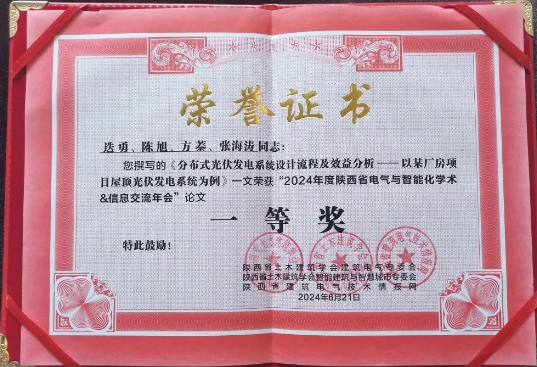 荣誉证书
迭勇、陈旭、方蓁、张海涛同志：
您撰写的《分布式光伏发电系统设计流程及效益分析——以某厂房项
目屋顶光伏发电系统为例》一文荣获“2024年度陕西省电气与智能化学术
&信息交流年会”论文
一等奖
特此鼓励！
陕西省土木建筑学会建筑电气专委会
陕西省土木建筑学会智能建筑与智慧城市专委会
陕西省建筑电气技术情报网
2024年6月21日